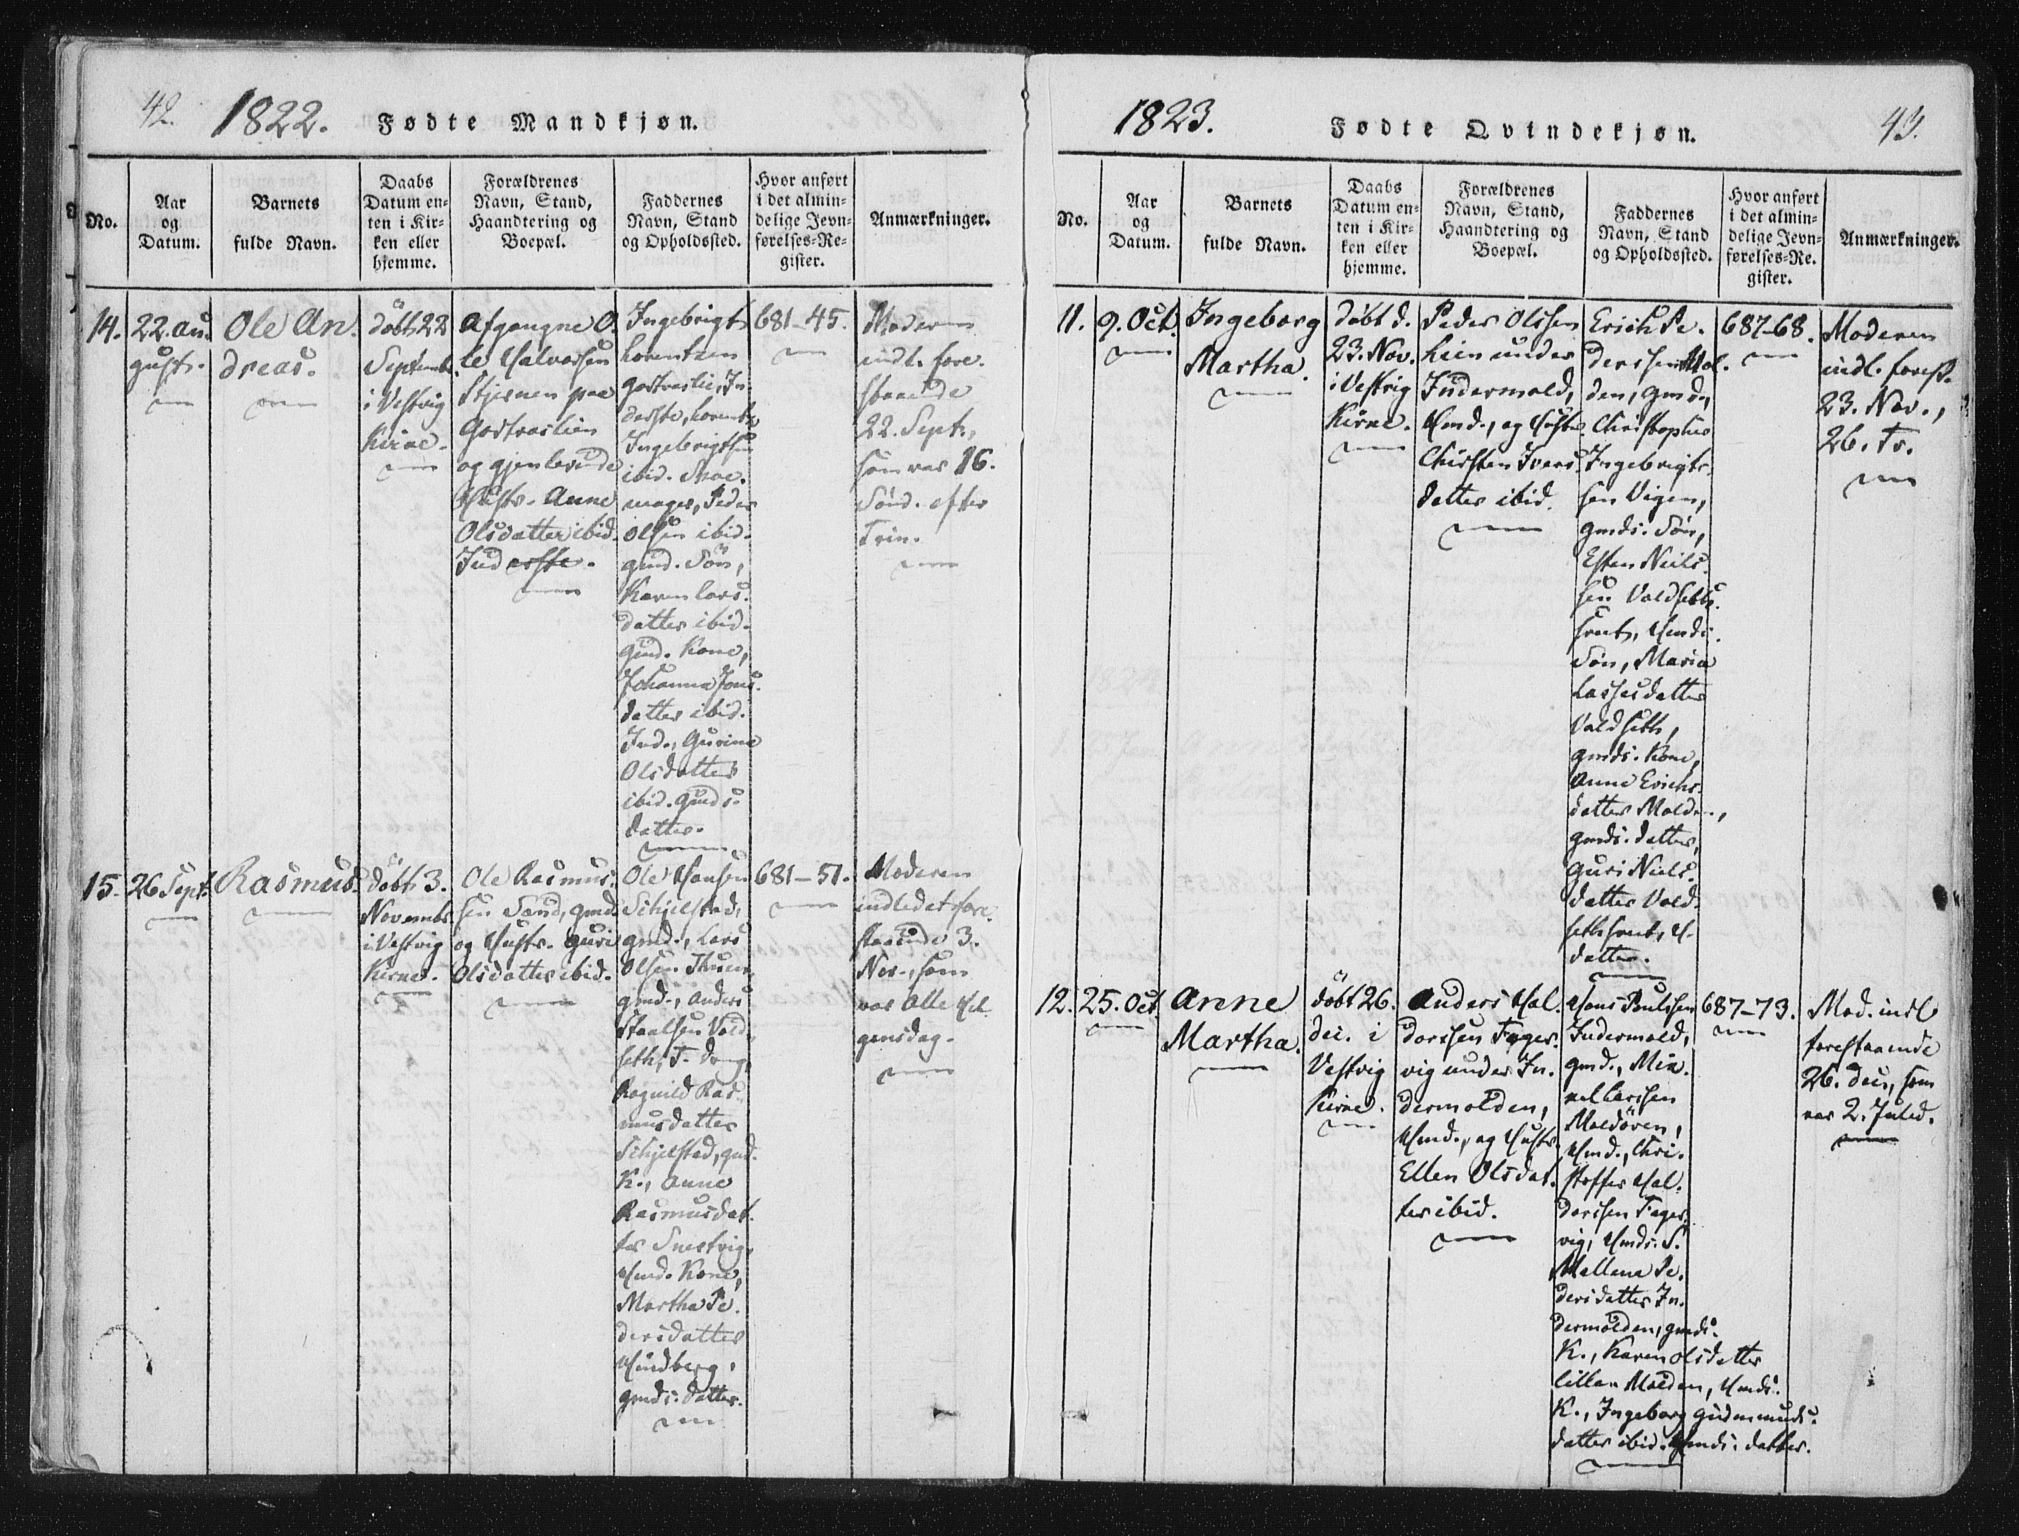 42. 1822. Fødte Mandkjøn.
No.
Aar
og
Datum.
Barnets
fulde Navn.
Daabs
Datum en-
ten i Kir-
ken eller
hjemme.
Forældrenes
Navn, Stand,
Haandtering og
Boepæl.
Faddernes
Navn, Stand
og Opholdssted.
Hvor anført
i det almin-
delige Jevn-
førelses-Re-
gister.
Anmærkninger.
14.
22. Au-
gust.
Ole An-
dreas.
döbt 22
Septembr.
i Vestvig
Kirke.
Afgangne O-
le Halvorsen
Stjernen paa
og gjenlevende
Hustr. Anne
Olsdatter ibid.
Ingebrigt
Lorentzen
Ingebrigtsen
ibid.
mager, Peder
Olsen ibid.
gmd. Søn,
Karen Lars-
datter ibid.
gmd. Kone,
Johanna Jons-
datter ibid.
Ind., Gurine
Olsdatter
ibid. gmds.
datter.
681-45.
Moderen
indl. fore-
staaende
22. Sept.,
som var 16.
Sönd. efter
Trin.
15.
26 Sept.
Rasmus.
döbt 3.
Novembr.
i Vestvig
Kirke.
Ole Rasmus-
sen Sund, gmd.
og Hustr. Guri
Olsdatter ibid.
Ole Hansen
Schjelstad,
gmd., Lars
Olsen
gmd., Anders
Staalsen Vold-
seth, T. dreng,
Ragnild Ras-
musdatter
Schjelstad, gmd.
K., Anne
Rasmusdat-
ter
Hmd. Kone,
Martha Pe-
dersdatter
Hindberg,
gmds. datter.
681-51.
Moderen
indledet fore-
staaende 3.
Nov., som
var Alle Hel-
gensdag.
1823. Fødte Qvindekjøn. 43.
No.
Aar
og
Datum.
Barnets
fulde Navn.
Daabs
Datum en-
ten i Kir-
ken eller
hjemme.
Forældrenes
Navn, Stand,
Haandtering og
Boepæl.
Faddernes
Navn, Stand
og Opholdssted.
Hvor anført
i det almin-
delige Jevn-
førelses-Re-
gister.
Anmærkninger.
11.
9. Oct.
Ingeborg
Martha.
döbt d.
23. Nov.
i Vestvig
Kirke.
Peder Olssen
Lien under
Indermold,
Hmd., og Hustr.
Chirsten Ivers-
datter ibid.
Erich Pe-
derssen Mol-
den, gmd.,
Christopher
Ingebrigts-
sen Vigen,
gmds. Sön,
Esten Niels-
sen Voldseth-
Sön, Maria
Lassesdatter
Voldseth,
gmds. Kone,
Anne Erichs-
datter Molden,
gmds. datter,
Guri Niels-
datter Vold-
datter.
687-68.
Moderen
indl. forest.
23. Nov.,
26. Tr.
12.
25. Oct.
Anne
Martha.
döbt 26.
dec. i
Vestvig
Kirke.
Anders Hal-
dorssen Fager-
vig under In-
dermolden,
Hmd., og Hustr.
Ellen Olsdat-
ter ibid.
Hans Paulssen
Indermold,
gmd., Mik-
kel Larssen
Moldören,
Hmd., Chri-
stoffer Hal-
dorssen Fager-
vig, Hmds. S.
Mallena Pe-
dersdatter In-
dermolden, gmds.
K., Karen Olsdatter
Lillan Molden, Hmds.
K., Ingeborg Gudmunds-
datter ibid. Hmds. datter.
687-73.
Mod. indl
forestaaende
26. dec., som
var 2. Juled.